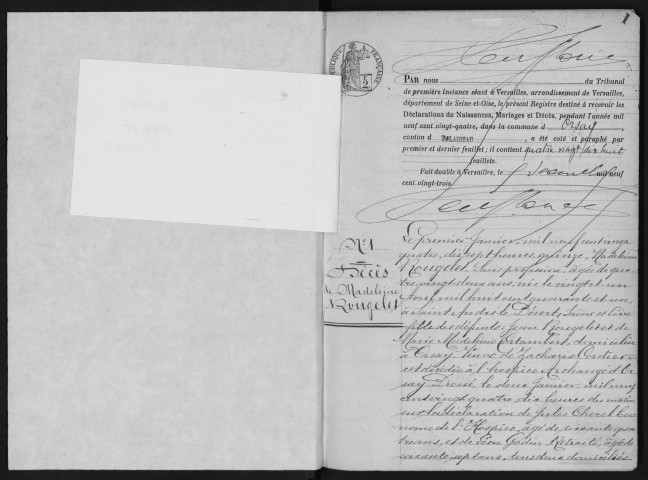 1
RÉPUBLIQUE FRANÇAISE
PAR nous du Tribunal
de première instance séant à Versailles, arrondissement de Versailles,
département de Seine-et-Oise, le présent Registre destiné à recevoir les
Déclarations de Naissances, Mariages et Décès, pendant l'année mil
neuf cent vingt-quatre, dans la commune d Orsay,
canton d PALAISEAU, a été coté et paraphé par
premier et dernier feuillet; il contient quatre vingt dix huit
feuillets.
Fait double à Versailles, le mil neuf
cent vingt-trois.
N°1
Décès
de Madeleine
Rougelet
Le premier Janvier mil neuf cent vingt
quatre, dix sept heures quinze, Madeleine
Rougelet, sans profession, âgée de qua
tre vingt deux ans, née le vingt et un
Août mil huit cent quarante et un,
à Saint André le Désert, Saône et Loire
fille des défunts Jean Rougelet et de
Marie Madeleine, domiciliée
à Orsay, Veuve de Zacharie Cordier
est décédée à l'hospice Archangé d'Or
say. Dressé le deux Janvier mil neuf
cent vingt quatre, dix heures du matin
sur la déclaration de Jules Éco
nome de l'Hospice, âgé de soixante qua
tre ans, et de Léon Godin Retraité, âgé de
soixante sept ans, tous deux domiciliés